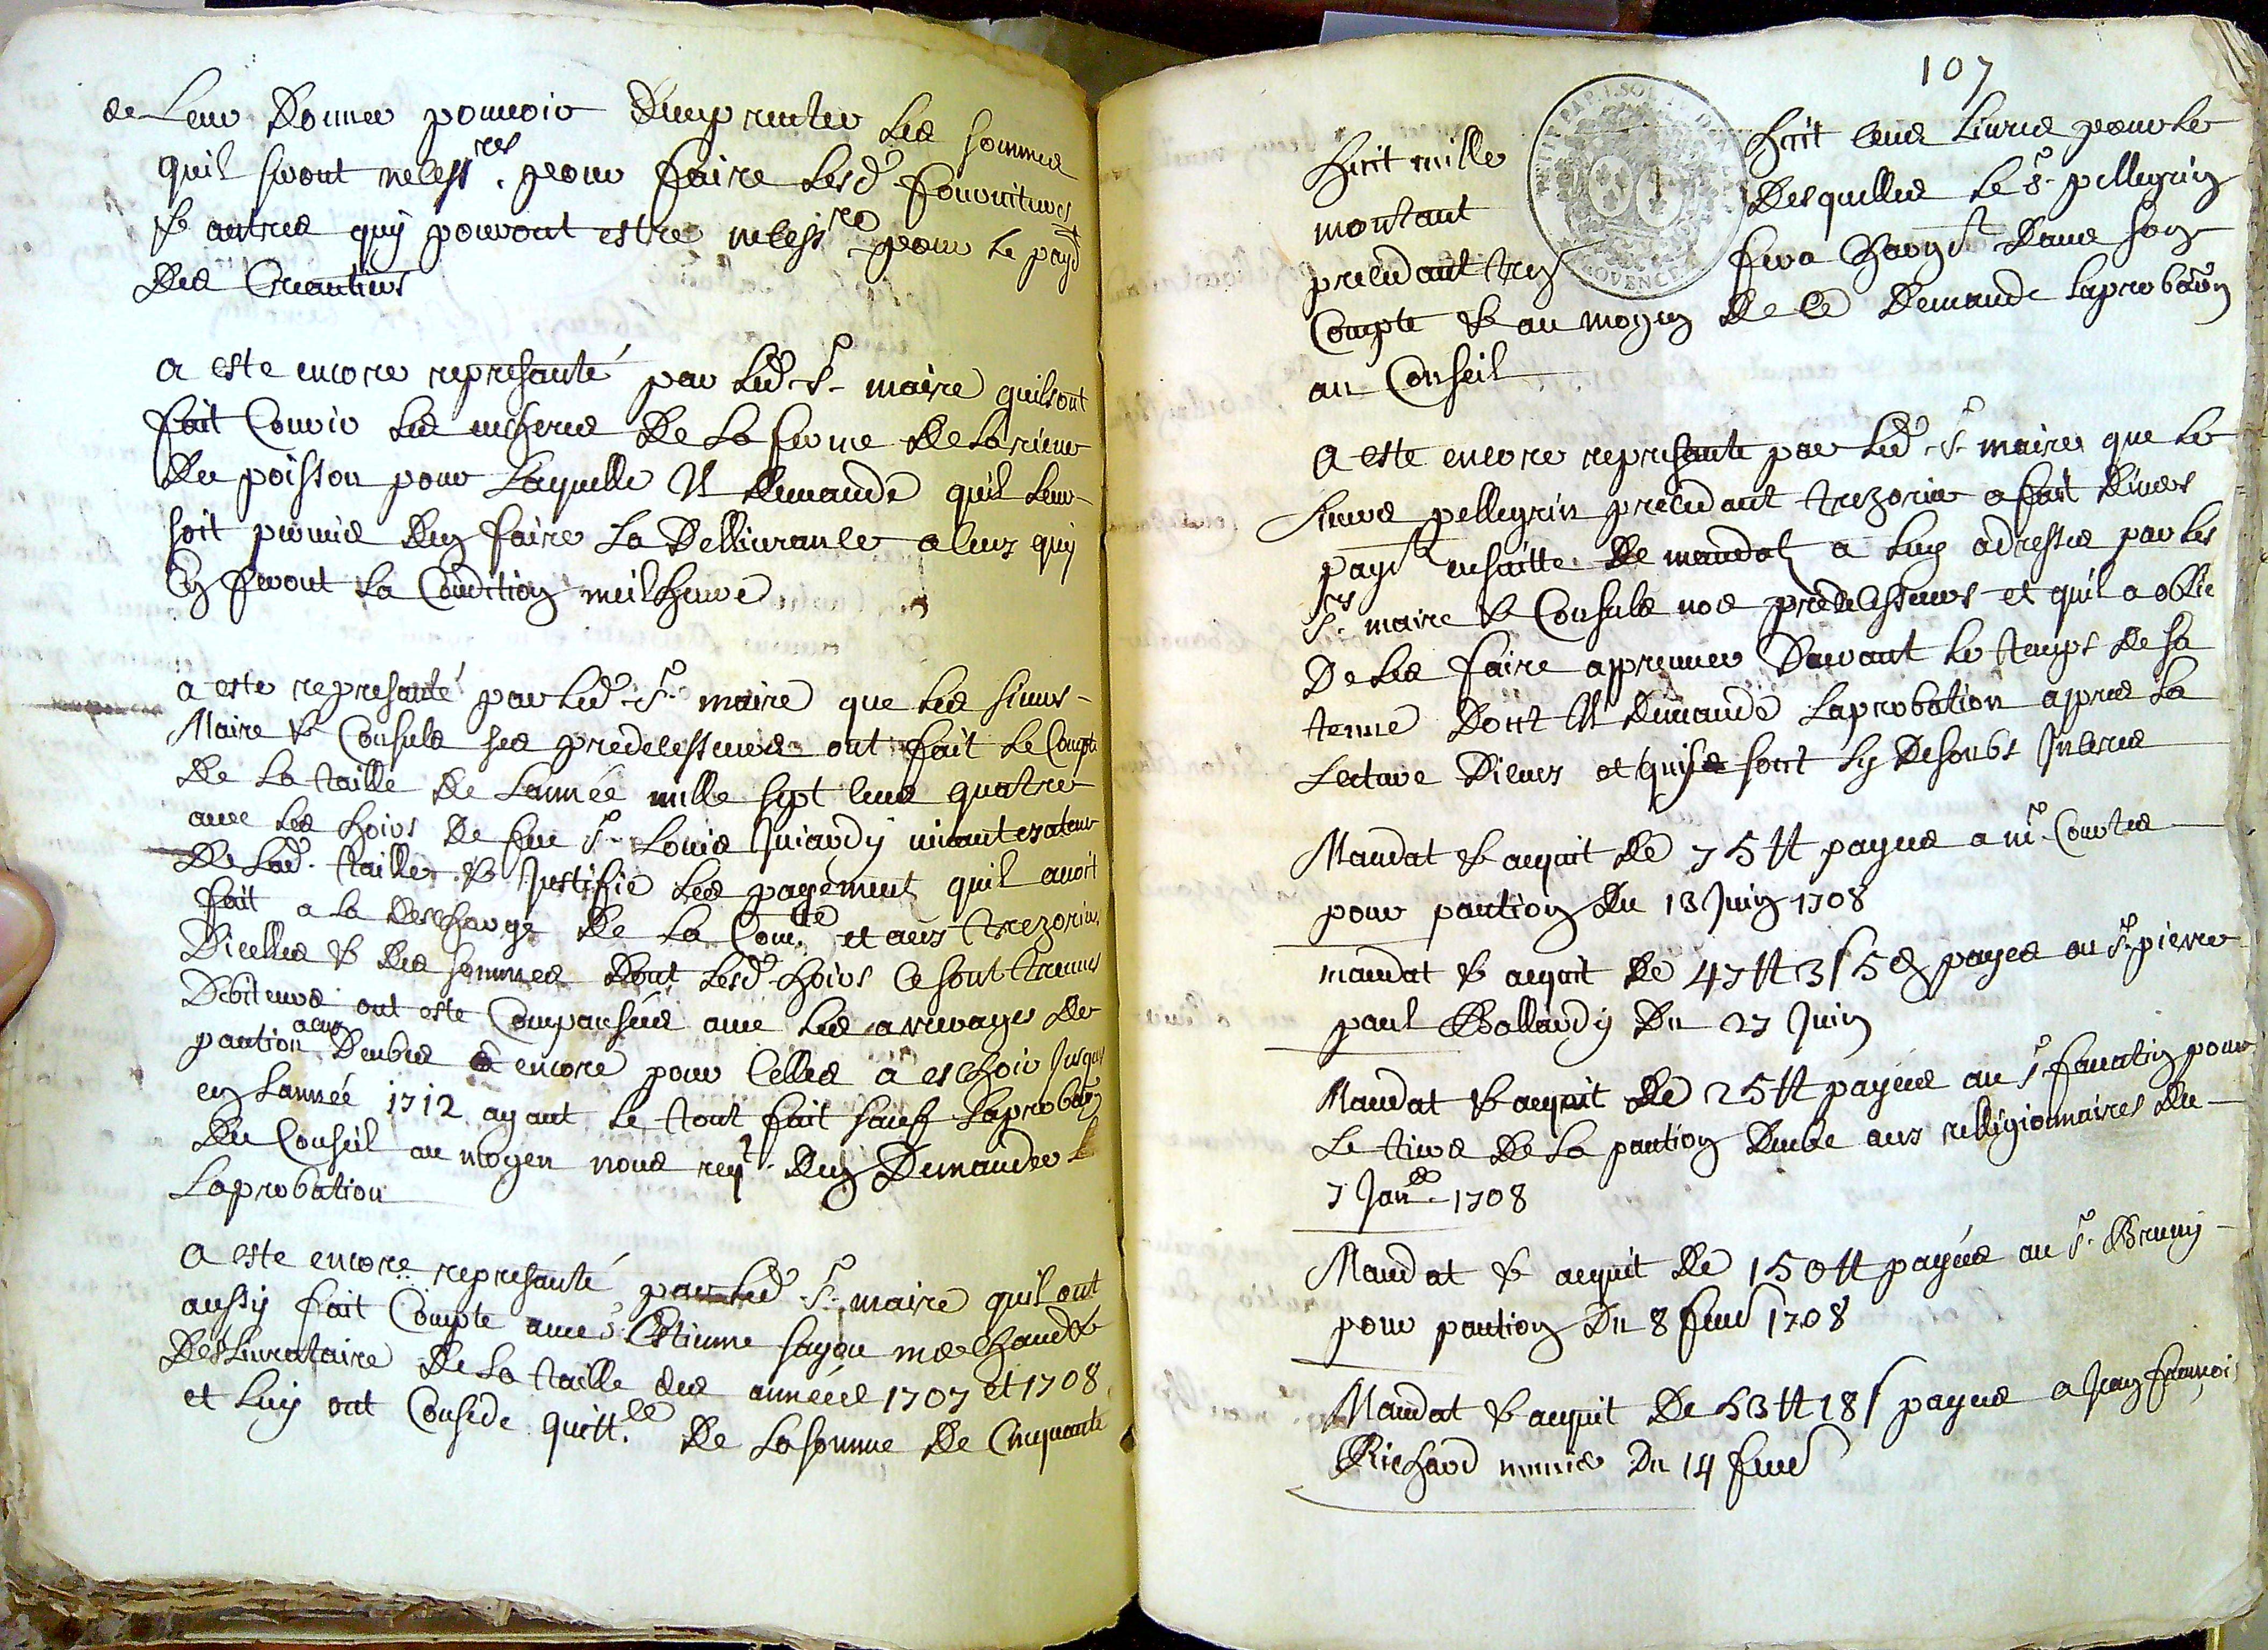 de Leur donner pouvoir demprunter Les sommes
quil seront necess.res pour faire Lesd fournitures
& autres quy pouront estre necess.res pour Le payt
des Creantiers
a este encore represanté par Led Sr maire quils ont
fait Courir Les encheres de La ferme de La rieve
du poisson pour Laquelle Il demande quil Leur
soit permis den faire La dellivrance a ceux quy
en feront La Condition meilheure
a este represanté par Led Sr maire que Les sieurs
Maire & Consuls ses predecesseurs ont fait Le Compte
de La taille de Lannée mille sept cens quatre
avec Les hoirs de feu Sr Louis
de Lad. taille & Justifie Les payement quil avoit
fait a La descharge de La Com.tte et aux trezoriers
dicelles & des sommes dont Lesd hoirs ce sont treuves
debiteurs ont este Compansées avec Les arrerages de
pantion a eux deubes & encore pour Celles a eschoir Jusques
en Lannée 1712 ayant Le tout fait sauf Laprobaon
du Conseil au moyen nous reqt. den demander
Laprobation
a este encore represanté par Led Sr maire quil ont
aussy fait Compte avec Sr Estienne sayou marchand &
deslivrataire de La taille des années 1707 et 1708
et Luy ont Consede quitt.ce de La somme de Cinquante
107
huit mille huit cens Livres pour Les
montant desquelles Le Sr pellegrin
precedant trezr fera chargt. dans son
Compte & au moyen de Ce demande Laprobaon
au Conseil
a este encore represante par Led Sr maire que Le
sieurs pellegrin precedant trezorier a fait divers
payts ensuitte de mandat a Luy adresses par Les
Srs maire & Consuls nos predecesseurs et quil a oblie
de Les faire approuver davant Le temps de sa
terme dont Il demande Laprobation apres La
Lecture diceux et quy sont Cy desoubs Inceres
Mandat & aquit de 75 ₶ payees a mr Courtes
pour pantion du 13 Juin 1708
mandat & aquit de 47 ₶ 3 s 5 d payes au Sr pierre
paul Ballardy du 27 Juin
Mandat & aquit de 25 ₶ payées au Sr fauatin pour
Le tiers de La pantion deube aux relligionnaires du
7 Janer 1708
Mandat & aquit de 150 ₶ payées au Sr Bruny
pour pantion du 8 feur 1708
Mandat & aquit de 53 ₶ 18 s payees a Jean francois
Richard du 14 feur